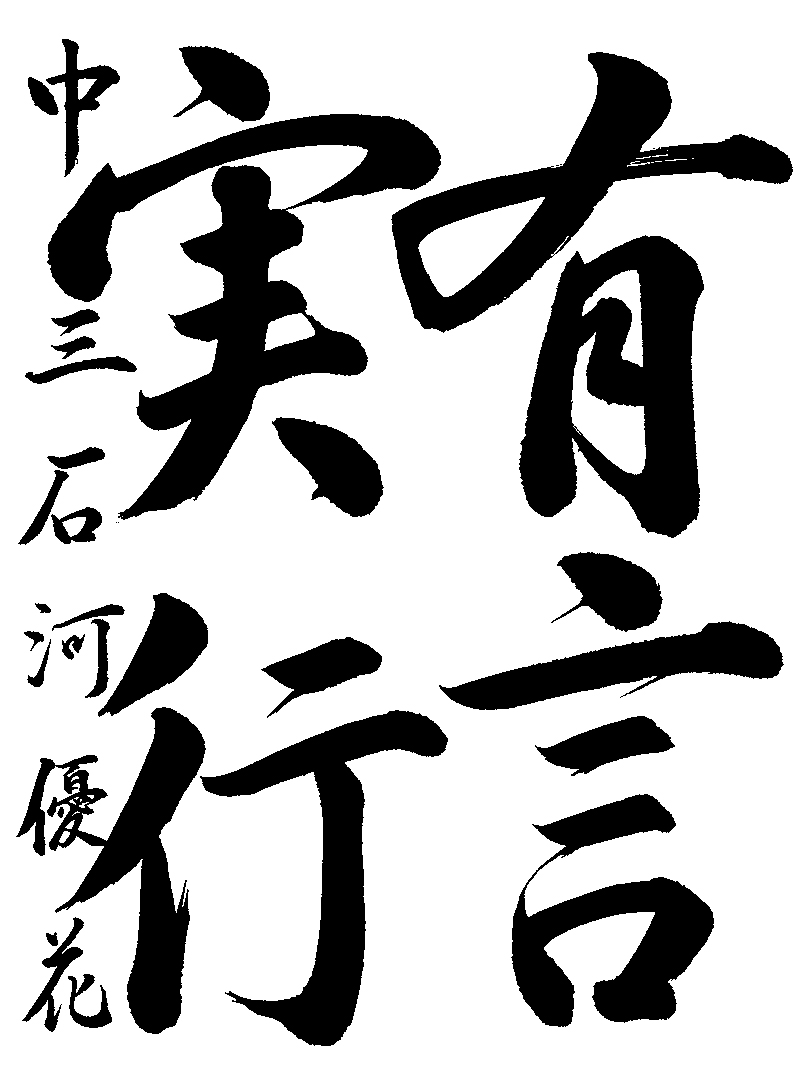 有言
実行
中三 石河優花